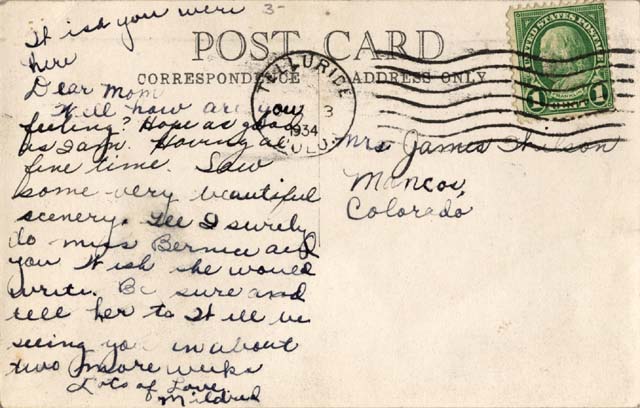 Wish you were
here
3-
POST CARD
CORRESPONDENCE
ADDRESS ONLY
TELLURIDE
3
1934
COLO.
UNITED STATES POSTAGE
1 CENT 1
Dear Mom
Well how are you
feeling? Hope as good
as I am. Having a
fine time. Saw
some very beautiful
scenery. Gee I surely
do miss Bernice and
you Wish she would
write. Be sure and
tell her to Will be
seeing you in about
two more weeks
Lots of Love,
Mildred
Mrs James Wilson
Mancos,
Colorado